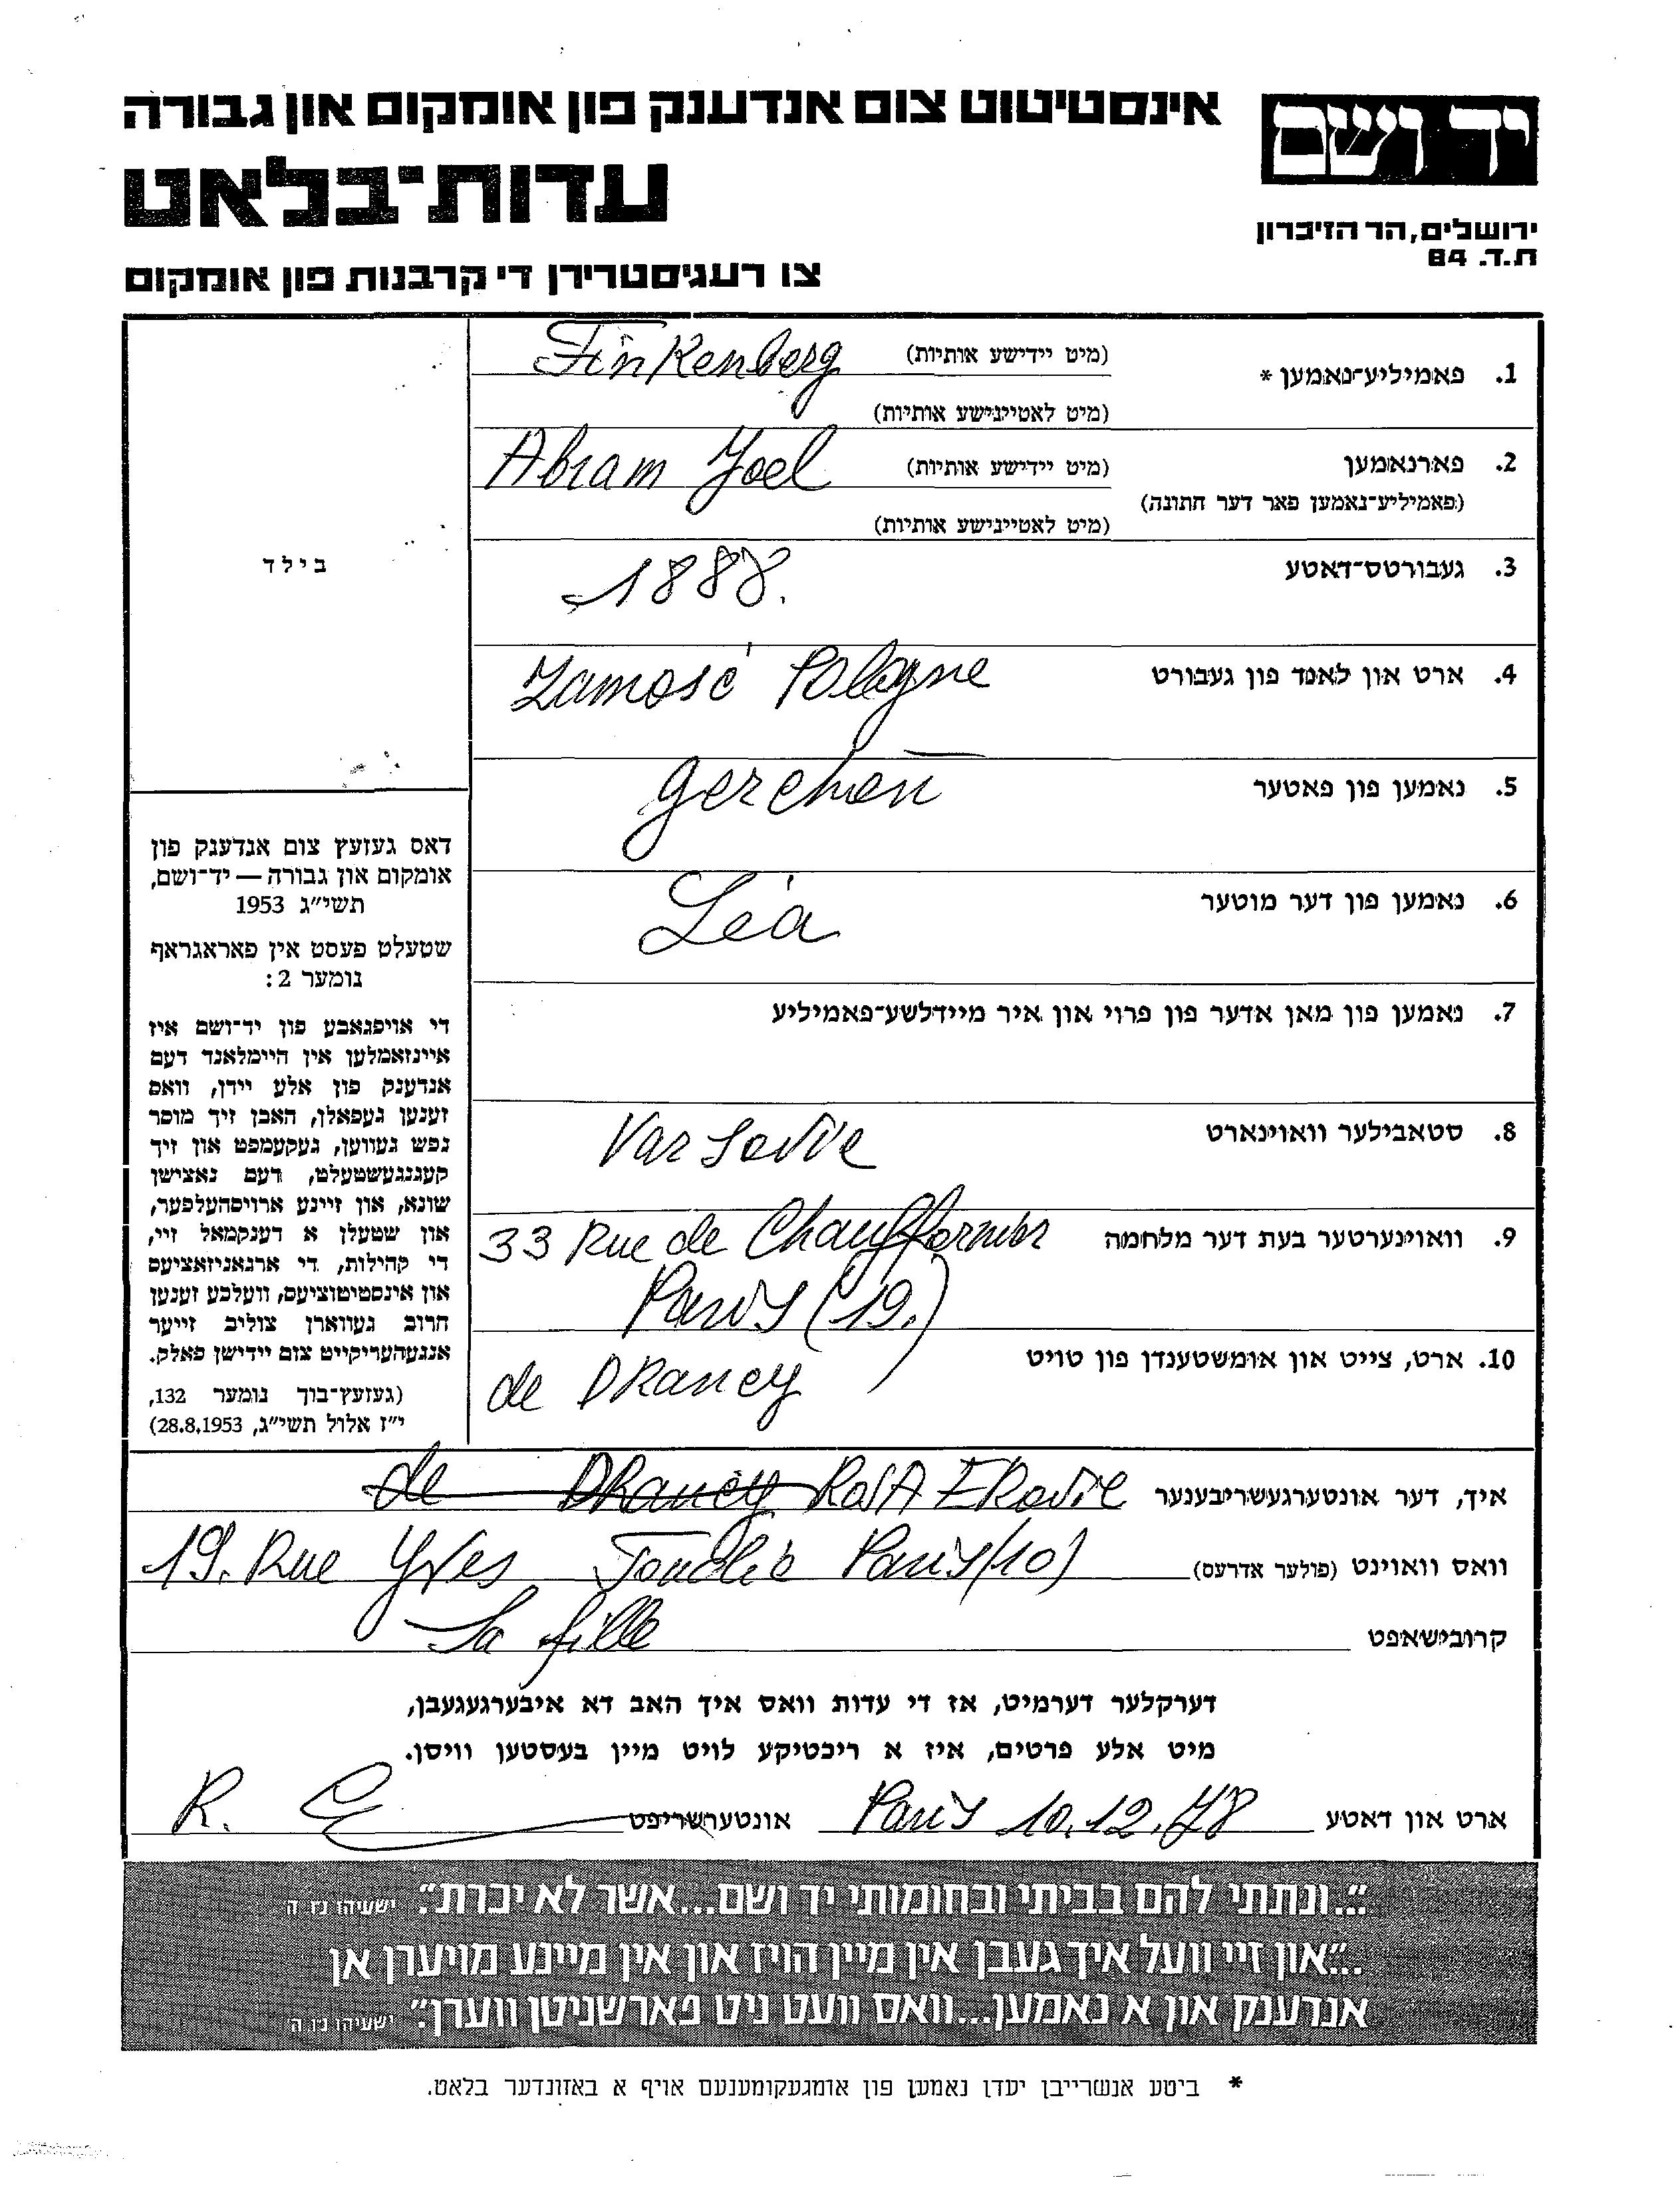 אינסטיטוט צום אנדענק פון אומקום און גבורה
יד ושם
עדות־בלאט
ירושלים, הר הזיכרון
ת.ד. 84
צו רעגיסטרירן די קרבנות פון אומקום
1. פאמיליע־נאמען * (מיט יידישע אותיות) Finkenberg
(מיט לאטיינישע אותיות)
2. פארנאמען (מיט יידישע אותיות) Abram Joel
(פאמיליע־נאמען פאר דער חתונה)
(מיט לאטיינישע אותיות)
3. געבורטס־דאטע 1888.
בילד
4. ארט און לאנד פון געבורט Zamość Pologne
5. נאמען פון פאטער Gerchen
6. נאמען פון דער מוטער Léa
7. נאמען פון מאן אדער פון פרוי און איר מיידלשע־פאמיליע
8. סטאבילער וואוינארט Varsovie
9. וואוינערטער בעת דער מלחמה 33 Rue de Chauffournier
Paris (19.)
10. ארט, צייט און אומשטענדן פון טויט de DRancy
דאס געזעץ צום אנדענק פון
אומקום און גבורה — יד־ושם,
תשי״ג 1953
שטעלט פעסט אין פאראגראף
נומער 2:
די אויפגאבע פון יד־ושם איז
איינזאמלען אין היימלאנד דעם
אנדענק פון אלע יידן, וואס
זענען געפאלן, האבן זיך מוסר
נפש געווען, געקעמפט און זיך
קעגנגעשטעלט, דעם נאצישן
שונא, און זיינע ארויסהעלפער,
און שטעלן א דענקמאל זיי,
די קהילות, די ארגאניזאציעס
און אינסטיטוציעס, וועלכע זענען
חרוב געווארן צוליב זייער
אנגעהעריקייט צום יידישן פאלק.
(געזעץ־בוך נומער 132,
י״ז אלול תשי״ג, 28.8.1953)
איך, דער אונטערגעשריבענער de DRancy RosA
וואס וואוינט (פולער אדרעס) 19. Rue Yves Toudic Paris (10)
קרובישאפט Sa fille
דערקלער דערמיט, אז די עדות וואס איך האב דא איבערגעגעבן,
מיט אלע פרטים, איז א ריכטיקע לויט מיין בעסטען וויסן.
ארט און דאטע Paris 10.12.78 אונטערשריפט R. E
"...ונתתי להם בביתי ובחומותי יד ושם...אשר לא יכרת". ישעיהו נ״ו ה
..."און זיי וועל איך געבן אין מיין הויז און אין מיינע מויערן אן
אנדענק און א נאמען...וואס וועט ניט פארשניטן ווערן". ישעיהו נ״ו ה
* ביטע אנשרייבן יעדן נאמען פון אומגעקומענעם אויף א באזונדער בלאט.